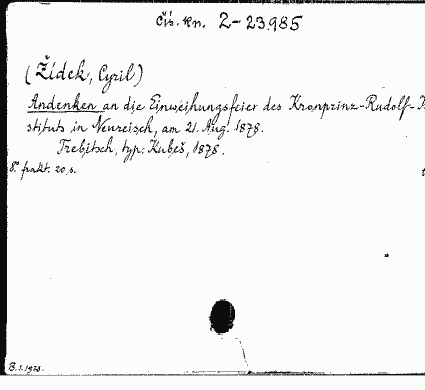 Čís. kn. 2-23.985
(Žídek, Cyril)
Andenken an die Einweihungsfeier des Kronprinz-Rudolf-
stituts in Neureisch, am 21. Aug. 1878.
Trebitsch, typ. Kubeš, 1878.
8° frakt. 20, s.
B.I.1928.